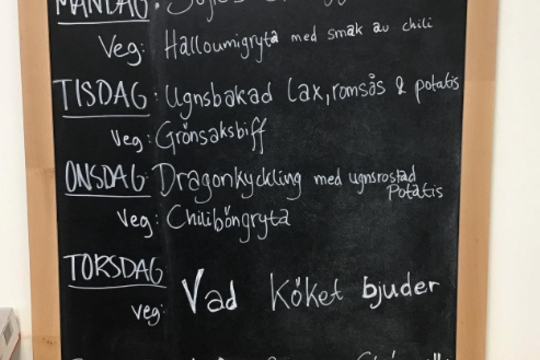 MÅNDAG:
Veg: Halloumigryta med smak av chili
TISDAG: Ugnsbakad lax, romsås & potatis
Veg: Grönsaksbiff
ONSDAG: Dragonkyckling med ugnsrostad
Potatis
Veg: Chiliböngryta
TORSDAG
Veg: Vad Köket bjuder